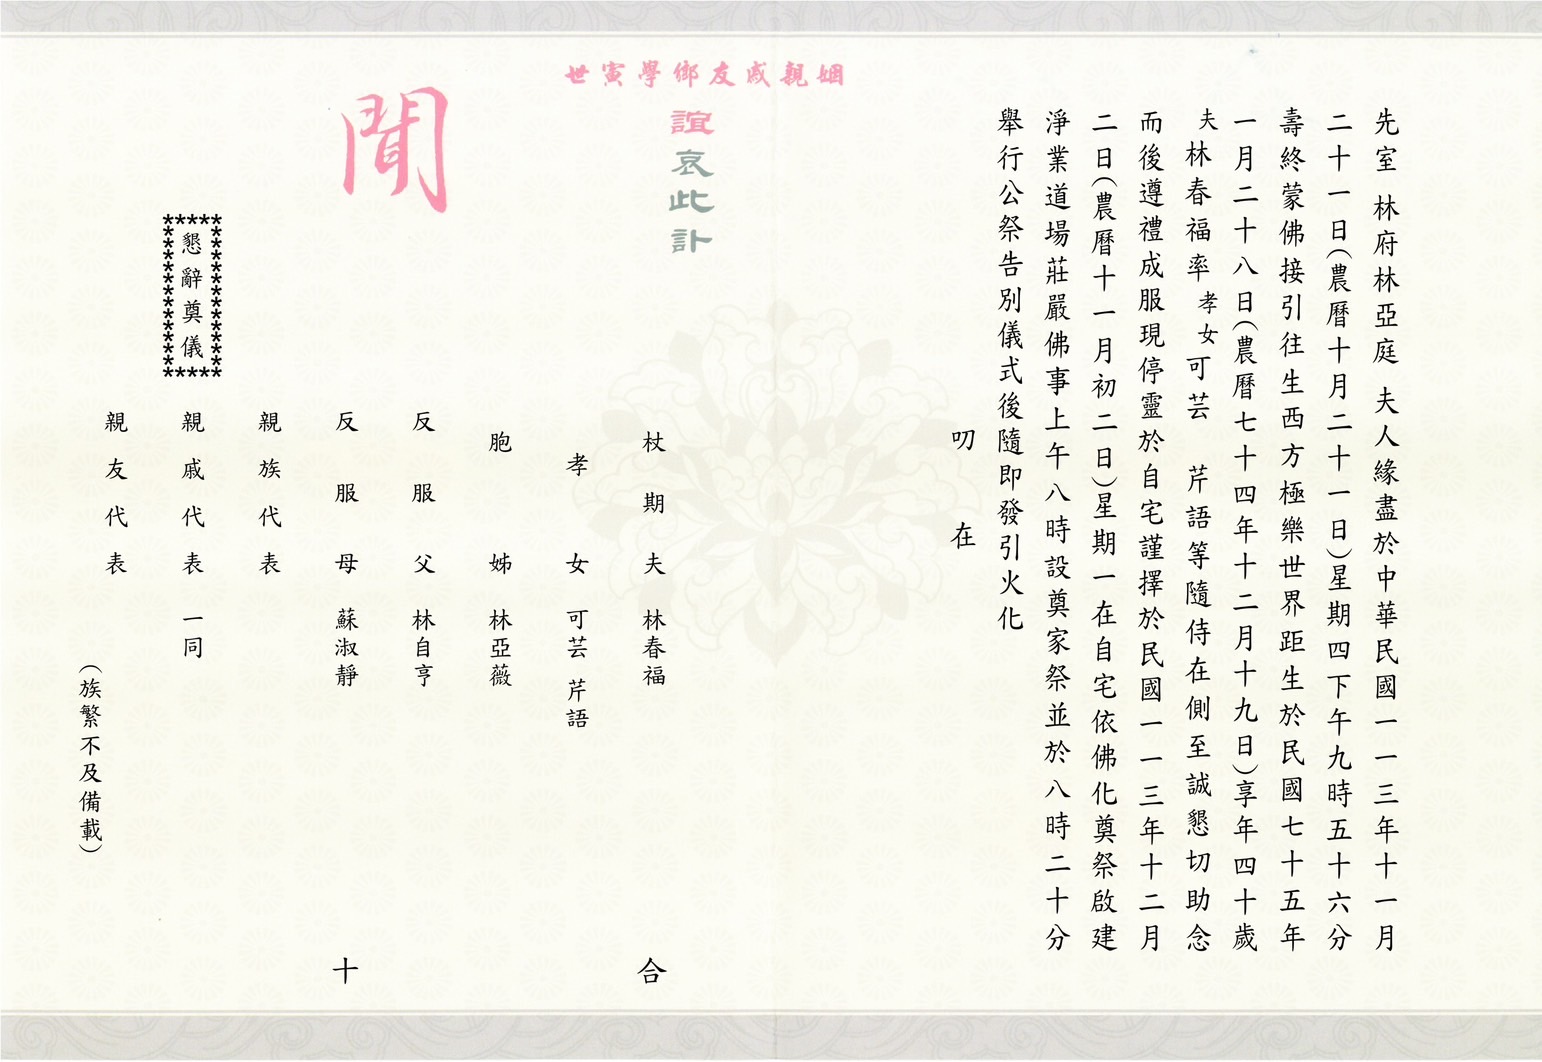 先室 林府林亞庭 夫人緣盡於中華民國一一三年十一月
二十一日(農曆十月二十一日)星期四下午九時五十六分
壽終蒙佛接引往生西方極樂世界距生於民國七十五年
一月二十八日(農曆七十四年十二月十九日)享年四十歲
夫林春福率孝女可芸 芹語等隨侍在側至誠懇切助念
而後遵禮成服現停靈於自宅謹擇於民國一一三年十二月
二日(農曆十一月初二日)星期一在自宅依佛化奠祭啟建
淨業道場莊嚴佛事上午八時設奠家祭並於八時二十分
舉行公祭告別儀式後隨即發引火化
叨在
姻親戚友鄉學寅世
誼哀此訃
聞
杖期夫 林春福
孝女 可芸 芹語
胞姊 林亞薇
反服父 林自亨
反服母 蘇淑靜
親族代表
親戚代表 一同
親友代表
(族繁不及備載)
合
十
*****
懇辭奠儀
*****